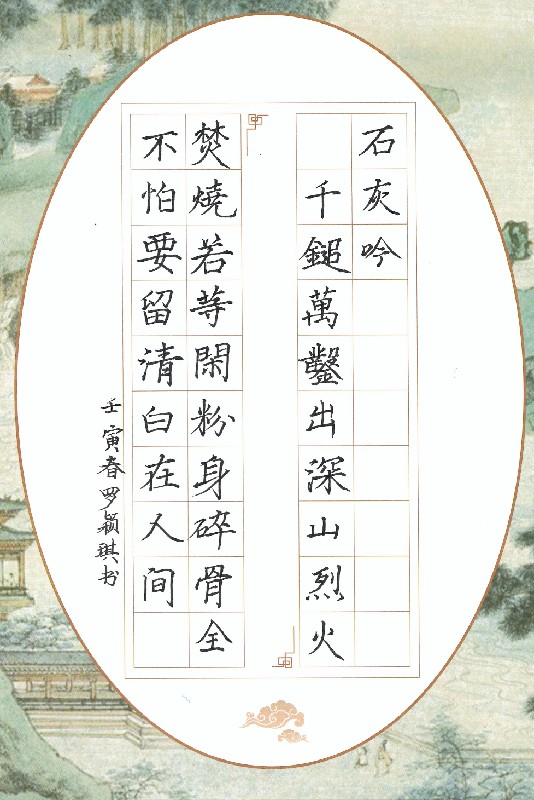 石灰吟
千鎚萬鑿出深山烈火
焚燒若等閑粉身碎骨全
不怕要留清白在人间
壬寅春罗颖琪书